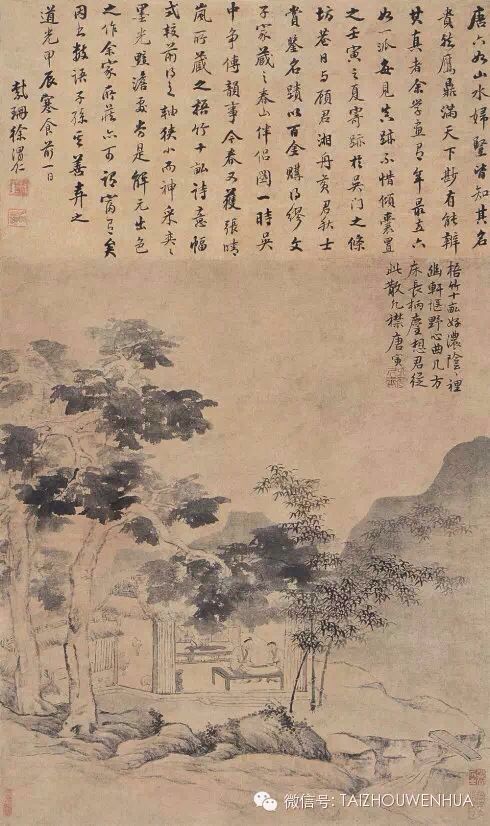 唐六如山水婦豎皆知其名
貴然贋鼎滿天下尠有能辨
其真者余學畫有年最喜六
如一派每見真跡不惜傾囊置
之壬寅之夏寄跡於吳門之條
坊巷日與顧君湘舟黃君秋士
賞鑒名蹟以百金購得繆文
子家藏之春山伴侶圖一時吳
中爭傳韻事今春又獲張晴
嵐所藏之梧竹十畝詩意幅
式校前得之軸狹小而神采奕々
墨光黯澹要皆是解元出色
之作余家所藏亦可謂富有矣
因上數語子孫其善弆之
道光甲辰寒食前一日
紫珊徐渭仁
梧竹十畝好濃陰々裡
幽軒愜野心曲几方
床長柄麈想君從
此散冗襟唐寅
微信号: TAIZHOUWENHUA